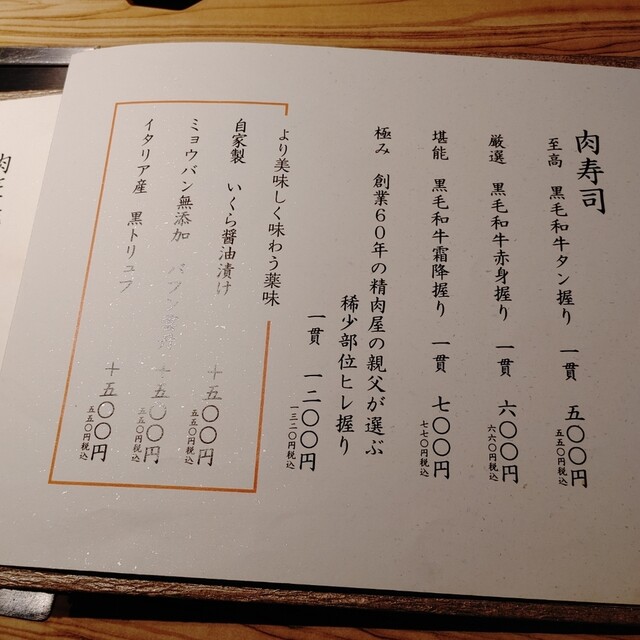 肉寿司
至高 黒毛和牛タン握り 一貫 五〇〇円
五五〇円税込
厳選 黒毛和牛赤身握り 一貫 六〇〇円
六六〇円税込
堪能 黒毛和牛霜降握り 一貫 七〇〇円
七七〇円税込
極み 創業60年の精肉屋の親父が選ぶ
稀少部位ヒレ握り
一貫 一二〇〇円
一三二〇円税込
より美味しく味わう薬味
自家製 いくら醤油漬け 十五〇〇円
五五〇円税込
ミョウバン無添加 十五〇〇円
五五〇円税込
イタリア産 黒トリュフ 十五〇〇円
五五〇円税込